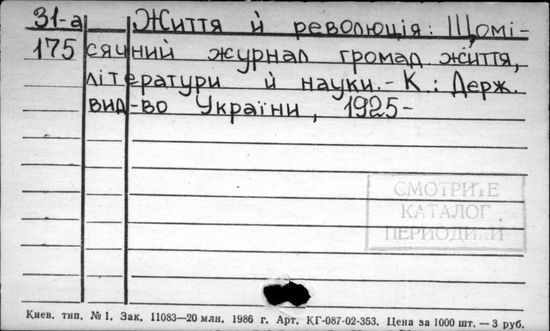 31-а Життя й революція: Щомі-
175 сячний журнал громад. життя,
літератури й науки.- К.: Держ.
вид-во України, 1925-
СМОТРИТЕ
КАТАЛОГ
ПЕРИОДИКИ
Киев. тип. № 1. Зак. 11083—20 млн. 1986 г. Арт. КГ-087-02-353. Цена за 1000 шт. — 3 руб.